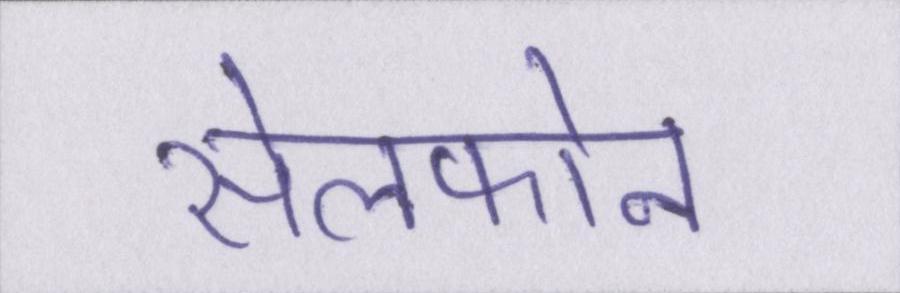 सेलफोन